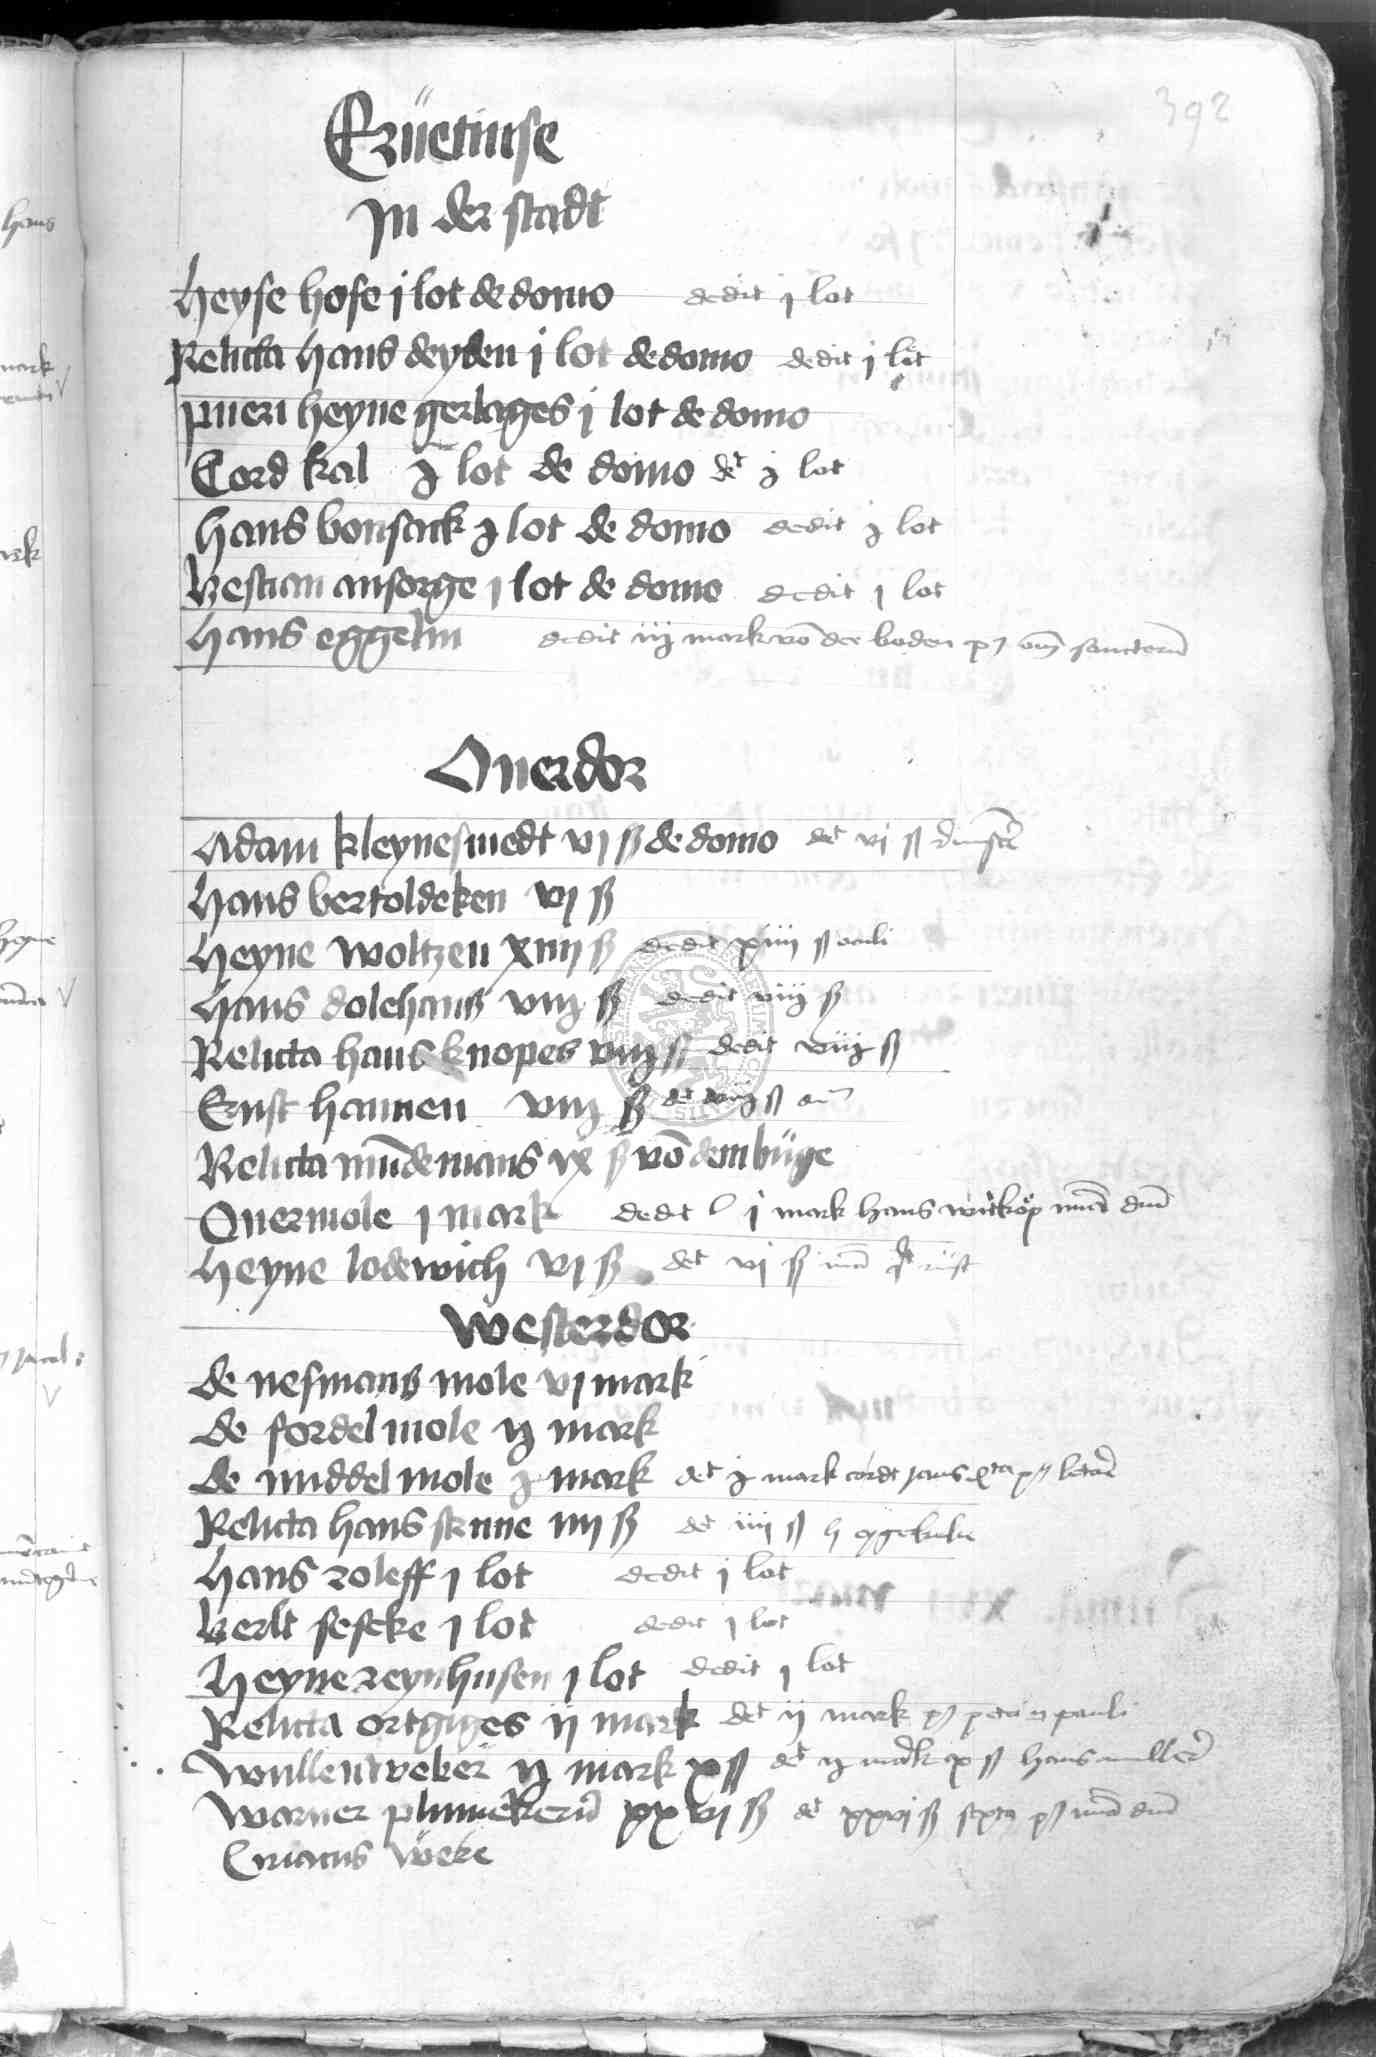 392
Erüetinse
In der stadt
Heyse hose j lot de domo dedit j lot
Relicta hans deyden j lot de domo dedit j lot
pueri heyne gerlages j lot de domo
Cord kal j lot de domo det j lot
Hans bonsack j lot de domo dedit j lot
Bestian ansorge j lot de domo dedit j lot
Hans eggelin dedit iij mark võ der boden sanctorũ
Ouerdor
Adam kleynesmedt vj ß de domo det vj ß
Hans bertoldeken vj ß
Heyne woltzen xiiij ß dedit xiiij ß oculi
Hans dolehans viij ß dedit viij ß
Relicta hans knopes viij ß dedit viij ß
Ernst hannen viij ß det viij ß
Relicta mũdemans ix ß võ dem büge
Ouermole j mark dedit j mark hans witköp
Heyne lodewich vj ß det vj ß
Westerdor
de nesmans mole vj mark
de fordel mole ij mark
de middel mole j mark det j mark cordt
Relicta hans stenne iiij ß det iiij ß h
Hans roleff j lot dedit j lot
Berlt seseke j lot dedit j lot
Heyne reynhusen j lot dedit j lot
Relicta ortgiges ij mark det ij mark petri pauli
Wullenweber ij mark x ß det ij mark x ß hans
Warner xxvj ß det xxvj ß sexta
Ciriacus weke